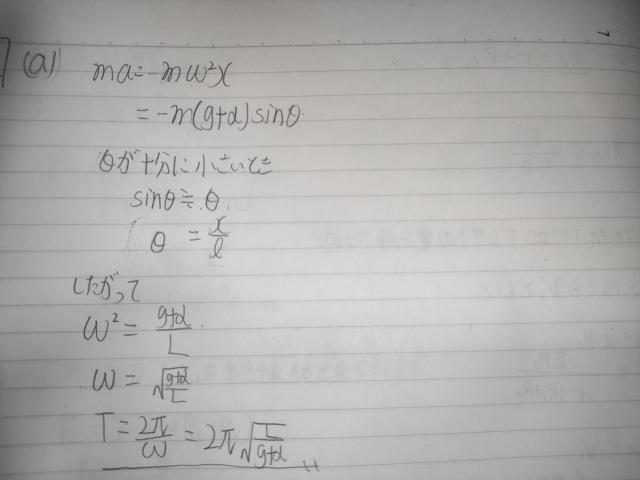 (a) ma=-mω²x
=-m(g+α)sinθ
θが十分に小さいとき
sinθ≒θ
θ = x/l
したがって
ω² = g+α/L
ω = √g+α/L
T = 2π/ω = 2π√L/g+α